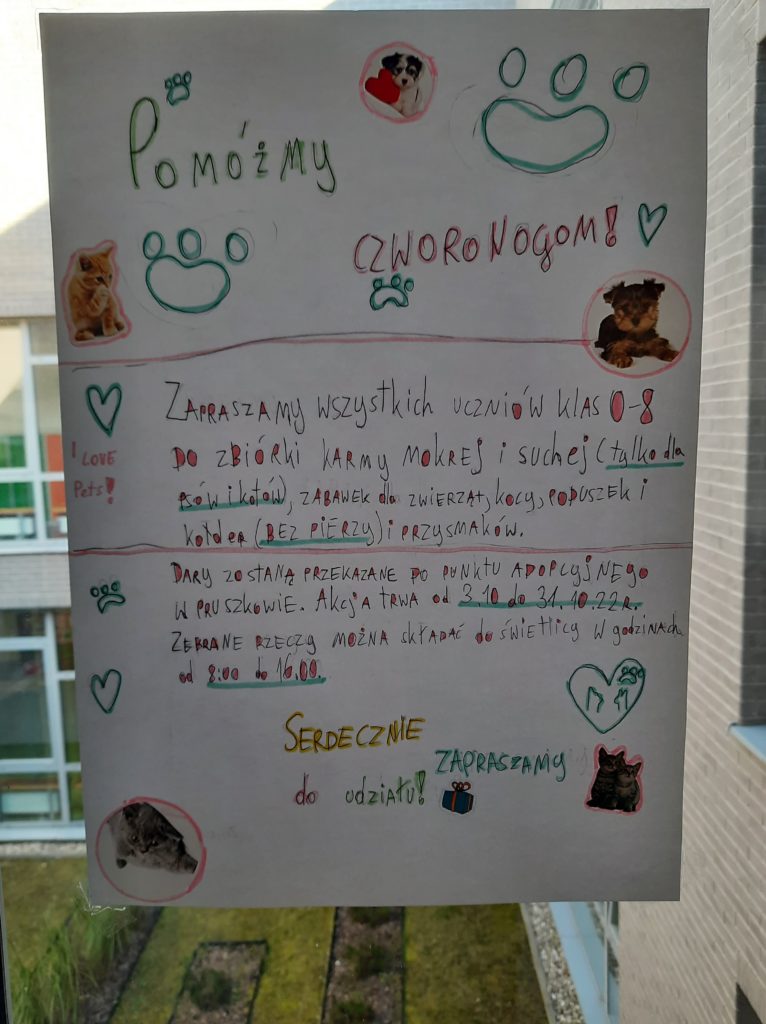 Pomóżmy
czworonogom!
Zapraszamy wszystkich uczniów klas 0-8
I LOVE
Pets!
do zbiórki karmy mokrej i suchej (tylko dla
psów i kotów), zabawek dla zwierząt, kocy, poduszek i
kołder (BEZ PIERZY) i przysmaków.
Dary zostaną przekazane do punktu adopcyjnego
w Pruszkowie. Akcja trwa od 3.10 do 31.10.22r.
Zebrane rzeczy można składać do świetlicy w godzinach
od 8:00 do 16.00.
Serdecznie
zapraszamy
do udziału!